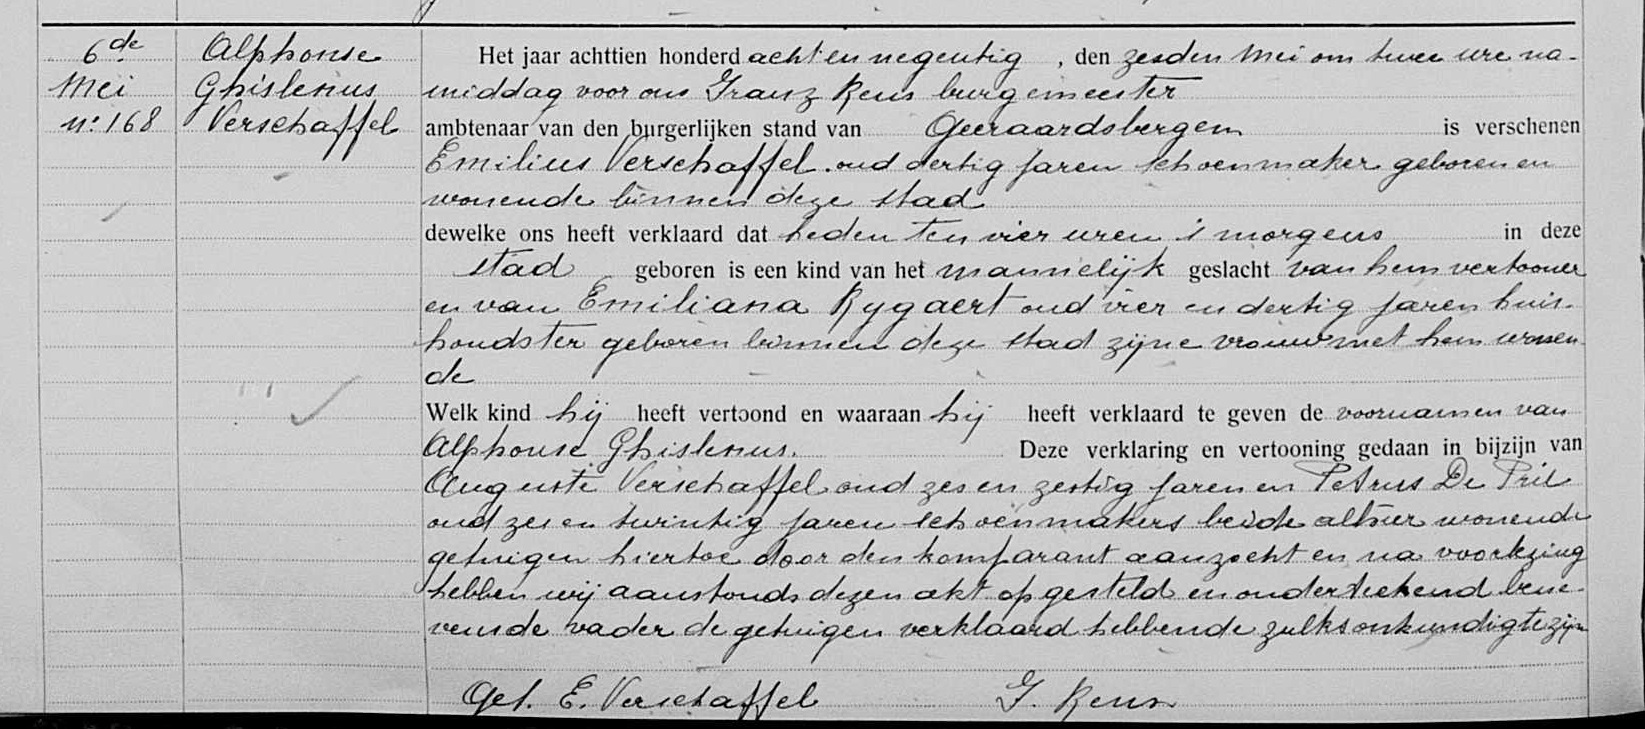 6de Mei n: 168
Alphonse Ghislenus Verschaffel
Het jaar achttien honderd acht en negentig , den zesden Mei om twee ure na-
middag voor ons Franz Rens burgemeester
ambtenaar van den burgerlijken stand van Geeraardsbergen is verschenen
Emilius Verschaffel oud dertig jaren schoenmaker geboren en
wonende binnen deze stad
dewelke ons heeft verklaard dat heden ten vier uren 's morgens in deze
stad geboren is een kind van het mannelijk geslacht van hem vertooner
en van Emiliana Rygaert oud vier en dertig jaren huis-
houdster geboren binnen deze stad zijne vrouw met hem wonen-
de
Welk kind hij heeft vertoond en waaraan hij heeft verklaard te geven de voornamen van
Alphonse Ghislenus. Deze verklaring en vertooning gedaan in bijzijn van
Auguste Verschaffel oud zes en zestig jaren en Petrus De Pril
oud zes en twintig jaren schoenmakers beide alhier wonende
getuigen hiertoe door den komparant aanzocht en na voorlezing
hebben wij aanstonds dezen akt opgesteld en onderteekend bene-
vens de vader de getuigen verklaard hebbende zulks onkundig te zijn
Get. E. Verschaffel F. Rens